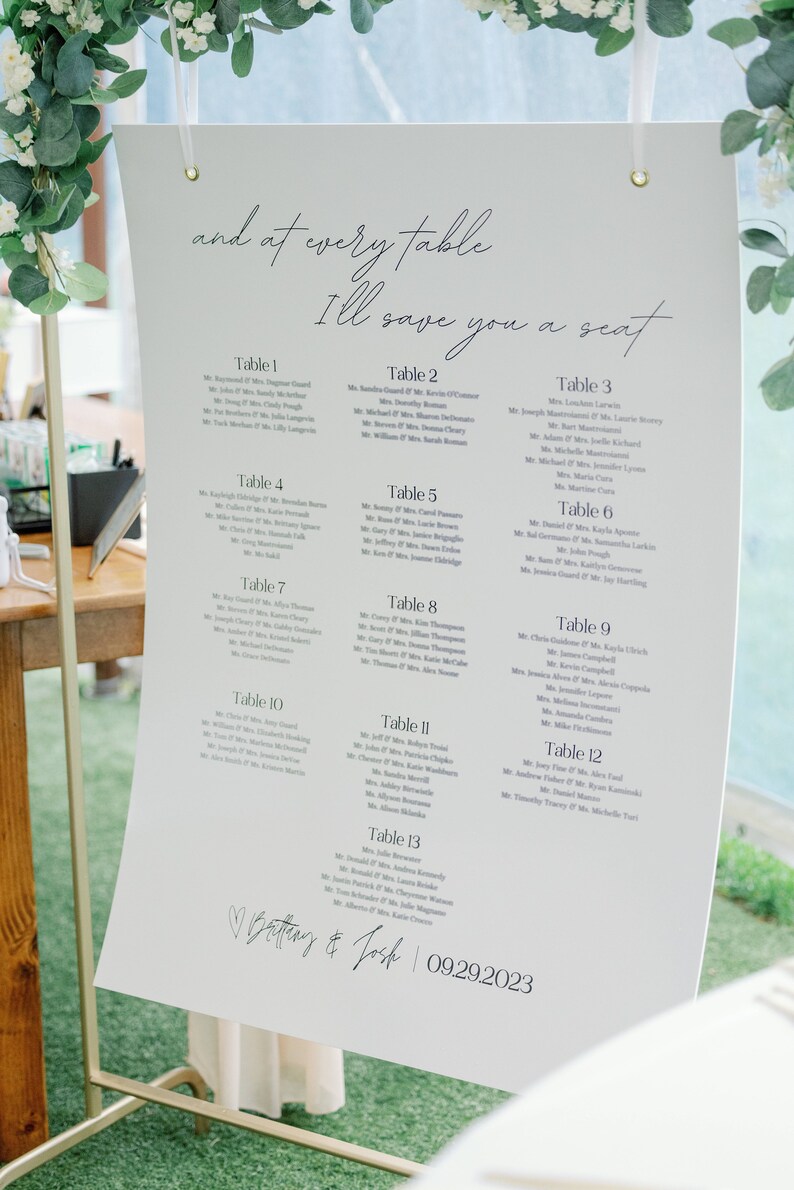 and at every table
I'll save you a seat
Table 1
Mr. Raymond & Mrs. Dagmar Guard
Mr. John & Mrs. Sandy McArthur
Mr. Doug & Mrs. Cindy Pough
Mr. Pat Brothers & Ms. Julia Langevin
Mr. Tuck Meehan & Ms. Lilly Langevin
Table 2
Ms. Sandra Guard & Mr. Kevin O'Connor
Mrs. Dorothy Roman
Mr. Michael & Mrs. Sharon DeDonato
Mr. Steven & Mrs. Donna Cleary
Mr. William & Mrs. Sarah Roman
Table 3
Mrs. LouAnn Larwin
Mr. Joseph Mastroianni & Ms. Laurie Storey
Mr. Bart Mastroianni
Mr. Adam & Mrs. Joelle Kichard
Ms. Michelle Mastroianni
Mr. Michael & Mrs. Jennifer Lyons
Mrs. Maria Cura
Ms. Martine Cura
Table 4
Ms. Kayleigh Eldridge & Mr. Brendan Burns
Mr. Cullen & Mrs. Katie Perrault
Mr. Mike Savrine & Ms. Brittany Ignace
Mr. Chris & Mrs. Hannah Falk
Mr. Greg Mastroianni
Mr. Mo Sakil
Table 5
Mr. Sonny & Mrs. Carol Passaro
Mr. Russ & Mrs. Lucie Brown
Mr. Gary & Mrs. Janice Briguglio
Mr. Jeffrey & Mrs. Dawn Erdos
Mr. Ken & Mrs. Joanne Eldridge
Table 6
Mr. Daniel & Mrs. Kayla Aponte
Mr. Sal Germano & Ms. Samantha Larkin
Mr. John Pough
Mr. Sam & Mrs. Kaitlyn Genovese
Ms. Jessica Guard & Mr. Jay Hartling
Table 7
Mr. Ray Guard & Ms. Aliya Thomas
Mr. Steven & Mrs. Karen Cleary
Mr. Joseph Cleary & Ms. Gabby Gonzalez
Mrs. Amber & Mrs. Kristal Solerti
Mr. Michael DeDonato
Ms. Grace DeDonato
Table 8
Mr. Corey & Mrs. Kim Thompson
Mr. Scott & Mrs. Jillian Thompson
Mr. Gary & Mrs. Donna Thompson
Mr. Tim Shortt & Mrs. Katie McCabe
Mr. Thomas & Mrs. Alex Noome
Table 9
Mr. Chris Guidone & Ms. Kayla Ulrich
Mr. James Campbell
Mr. Kevin Campbell
Mrs. Jessica Alves & Mrs. Alexis Coppola
Ms. Jennifer Lepore
Mrs. Melissa Inconstanti
Ms. Amanda Cambra
Mr. Mike FitzSimons
Table 10
Mr. Chris & Mrs. Amy Guard
Mr. William & Mrs. Elizabeth Hosking
Mr. Tom & Mrs. Marlena McDonnell
Mr. Joseph & Mrs. Jessica DeVoe
Mr. Alex Smith & Ms. Kristen Martin
Table 11
Mr. Jeff & Mrs. Robyn Troisi
Mr. John & Mrs. Patricia Chipko
Mr. Chester & Mrs. Katie Washburn
Ms. Sandra Merrill
Mrs. Ashley Birtwistle
Ms. Allyson Bourassa
Ms. Alison Sklanka
Table 12
Mr. Joey Fine & Ms. Alex Faul
Mr. Andrew Fisher & Mr. Ryan Kaminski
Mr. Daniel Munzo
Mr. Timothy Tracey & Ms. Michelle Turi
Table 13
Mrs. Julie Brewster
Mr. Donald & Mrs. Andrea Kennedy
Mr. Ronald & Mrs. Laura Reiske
Mr. Justin Patrick & Ms. Cheyenne Watson
Mr. Tom Schrader & Ms. Julie Magnano
Mr. Alberto & Mrs. Katie Crocco
Brittany & Josh | 09.29.2023